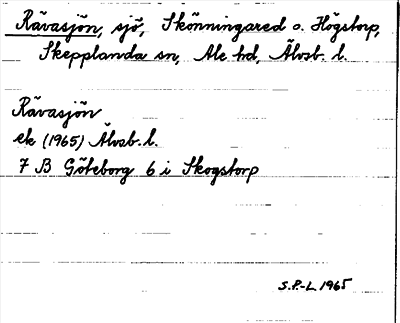 Rävasjön, sjö, Skönningared o. Högstorp,
Skepplanda sn, Ale hd, Älvsb. l.
Rävasjön
ek (1965) Älvsb. l.
7 B Göteborg 6 i Skogstorp
S.P.-L 1965